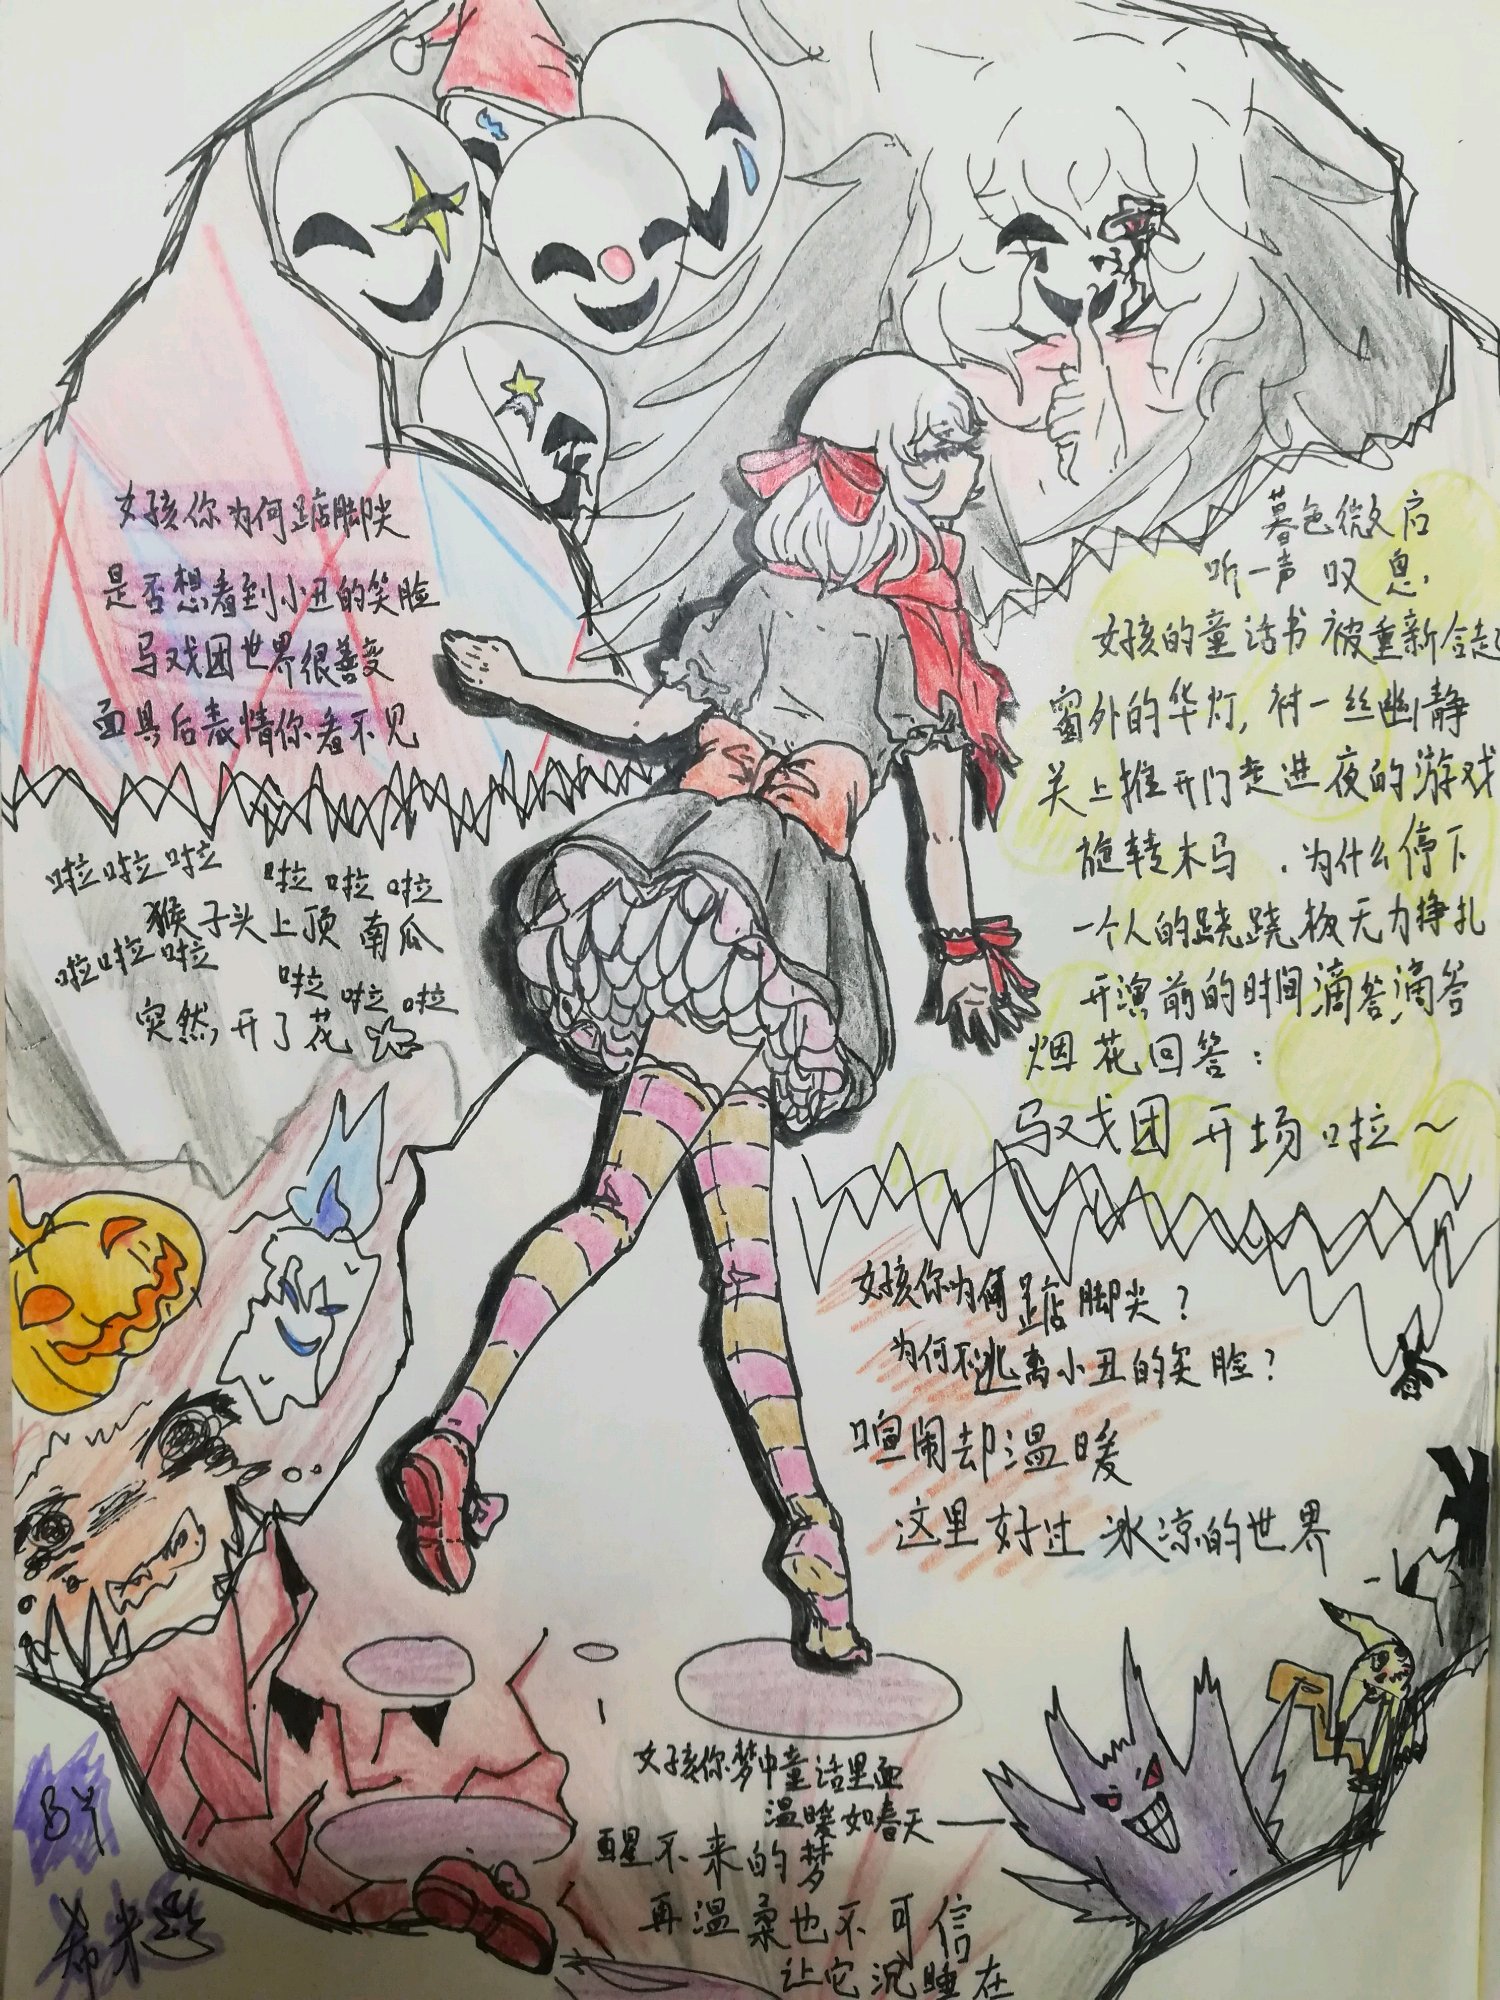 女孩你为何踮脚尖
是否想看到小丑的笑脸
马戏团世界很善变
面具后表情你看不见
啦啦啦 啦啦啦
猴子头上顶南瓜
啦啦啦 啦啦啦
突然开了花
暮色微启
听一声叹息
女孩的童话书被重新合起
窗外的华灯,衬一丝幽静
关上推开门走进夜的游戏
旋转木马.为什么停下
一个人的跷跷板无力挣扎
开演前的时间滴答滴答
烟花回答:
马戏团开场啦~
女孩你为何踮脚尖?
为何不逃离小丑的笑脸?
喧闹却温暖
这里好过冰凉的世界
女孩你梦中童话里面
温暖如春天——
醒不来的梦
再温柔也不可信
让它沉睡在
BY